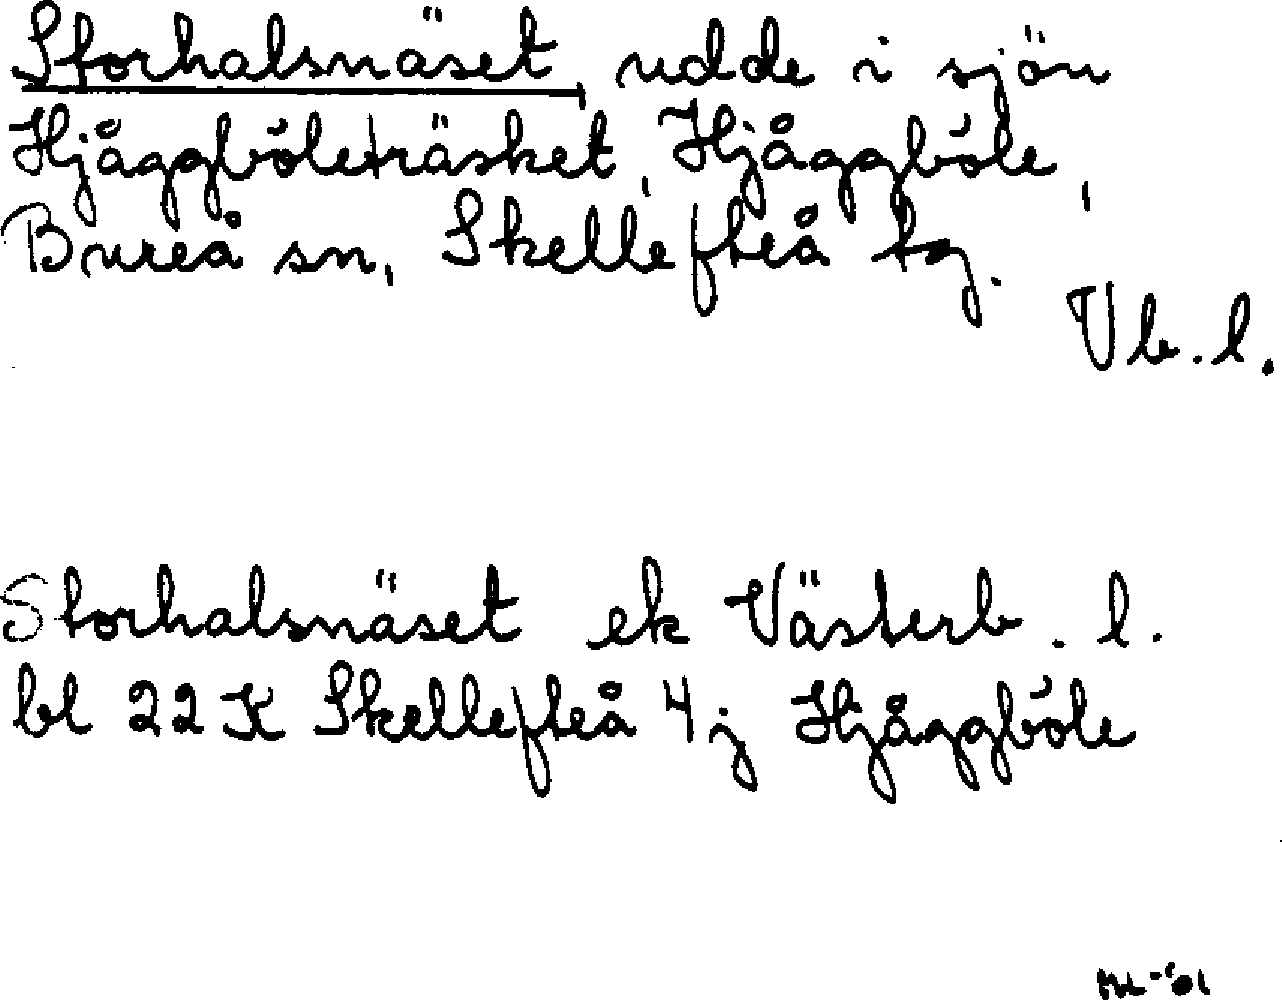 Storhalsnäset, udde i sjön
Hjåggböleträsket, Hjåggböle,
Bureå sn, Skellefteå tg.
Vb. l.
Storhalsnäset ek Västerb. l.
bl 22 K Skellefteå 4 j Hjåggböle